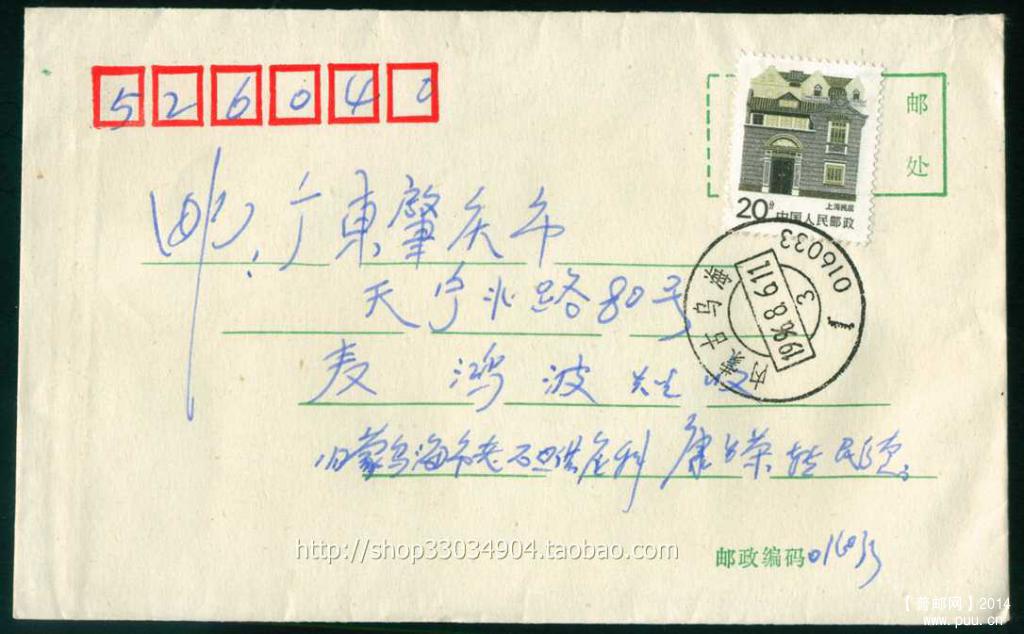 526040
邮:广东肇庆市
天宁北路80号
麦鸿波 先生 收
内蒙乌海市老石旦供应科 康 荣转
邮政编码016033
邮
处
20分
上海民居
中国人民邮政
016033
内蒙古乌海
1996.8.6.11
3
http://shop33034904.taobao.com
【普邮网】2014
www.puu.cn